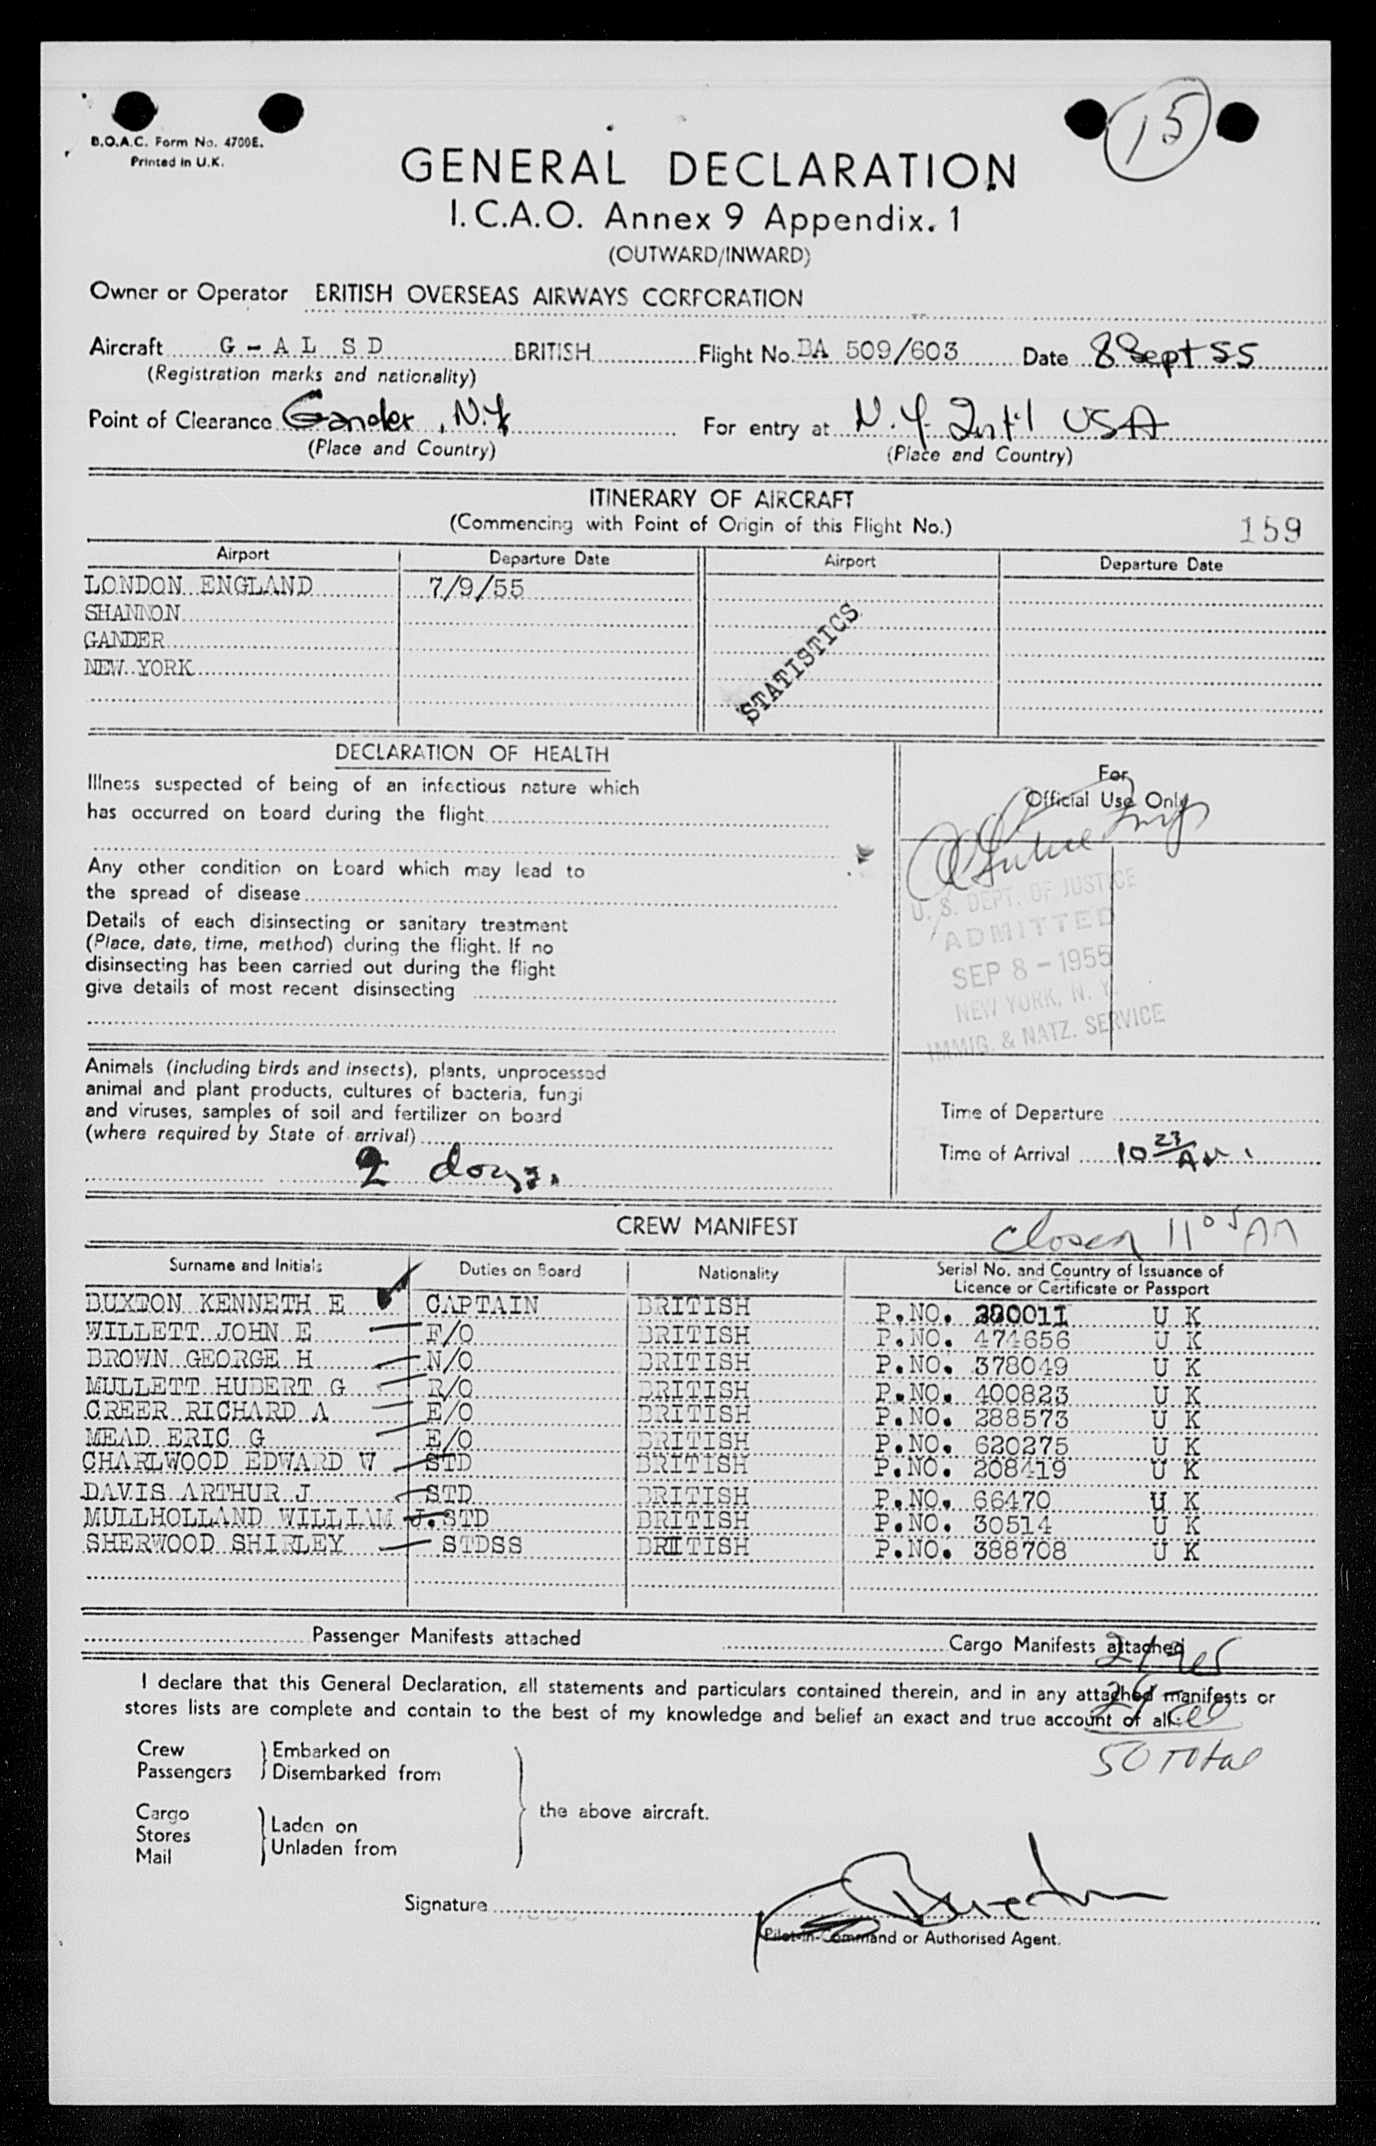 15
B.O.A.C. Form No. 4700E.
Printed in U.K.
GENERAL DECLARATION
I.C.A.O. Annex 9 Appendix. 1
(OUTWARD/INWARD)
Owner or Operator BRITISH OVERSEAS AIRWAYS CORPORATION
Aircraft G-AL SD BRITISH Flight No. BA 509/603 Date 8 Sept 55
(Registration marks and nationality)
Point of Clearance Gander, N.f For entry at N.Y. Int'l USA
(Place and Country) (Place and Country)
ITINERARY OF AIRCRAFT
(Commencing with Point of Origin of this Flight No.) 159
Airport Departure Date Airport Departure Date
LONDON ENGLAND 7/9/55
SHANNON
GANDER
NEW YORK
STATISTICS
DECLARATION OF HEALTH
Illness suspected of being of an infectious nature which
has occurred on board during the flight
Any other condition on board which may lead to
the spread of disease
Details of each disinsecting or sanitary treatment
(Place, date, time, method) during the flight. If no
disinsecting has been carried out during the flight
give details of most recent disinsecting
For
Official Use Only
U. S. DEPT. OF JUSTICE
ADMITTED
SEP 8 - 1955
NEW YORK, N. Y.
IMMIG. & NATZ. SERVICE
Animals (including birds and insects), plants, unprocessed
animal and plant products, cultures of bacteria, fungi
and viruses, samples of soil and fertilizer on board
(where required by State of arrival)
2 dogs.
Time of Departure
Time of Arrival 10 23 AM
CREW MANIFEST closed 11 05 AM
Surname and Initials Duties on Board Nationality Serial No. and Country of Issuance of
Licence or Certificate or Passport
BUXTON KENNETH E CAPTAIN BRITISH P.NO. 380011 U K
WILLETT JOHN E F/O BRITISH P.NO. 474656 U K
BROWN GEORGE H N/O BRITISH P.NO. 378049 U K
MULLETT HUBERT G R/O BRITISH P.NO. 400823 U K
CREER RICHARD A E/O BRITISH P.NO. 288573 U K
MEAD ERIC G E/O BRITISH P.NO. 620275 U K
CHARLWOOD EDWARD W STD BRITISH P.NO. 208419 U K
DAVIS ARTHUR J STD BRITISH P.NO. 66470 U K
MULLHOLLAND WILLIAM J. STD BRITISH P.NO. 30514 U K
SHERWOOD SHIRLEY STDSS BRITISH P.NO. 388708 U K
Passenger Manifests attached Cargo Manifests attached
I declare that this General Declaration, all statements and particulars contained therein, and in any attached manifests or
stores lists are complete and contain to the best of my knowledge and belief an exact and true account of all:
50 Total
Crew } Embarked on
Passengers } Disembarked from
Cargo
Stores } Laden on
Mail } Unladen from
the above aircraft.
Signature
Pilot-in-Command or Authorised Agent.